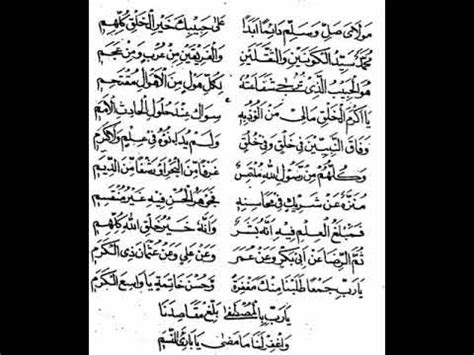 مولاي صل وسلم دائما ابدا على حبيبك خير الخلق كلهم
محمد سيد الكونين والثقلين والفريقين من عرب ومن عجم
هو الحبيب الذي ترجى شفاعته لكل هول من الاهوال مقتحم
يا اكرم الخلق مالي من الوذ به سواك عند حلول الحادث العمم
وفاق النبيين في خلق وفي خلق ولم يدانوه في علم ولا كرم
وكلهم من رسول الله ملتمس غرفا من البحر او رشفا من الديم
منزه عن شريك في محاسنه فجوهر الحسن فيه غير منقسم
فمبلغ العلم فيه انه بشر وانه خير خلق الله كلهم
ثم الرضا عن ابي بكر وعن عمر وعن علي وعن عثمان ذي الكرم
يارب جمعا طلبنا منك مغفرة وحسن خاتمة يا واسع الكرم
يارب بالمصطفى بلغ مقاصدنا
واغفر لنا ما مضى يا بارئ النسم